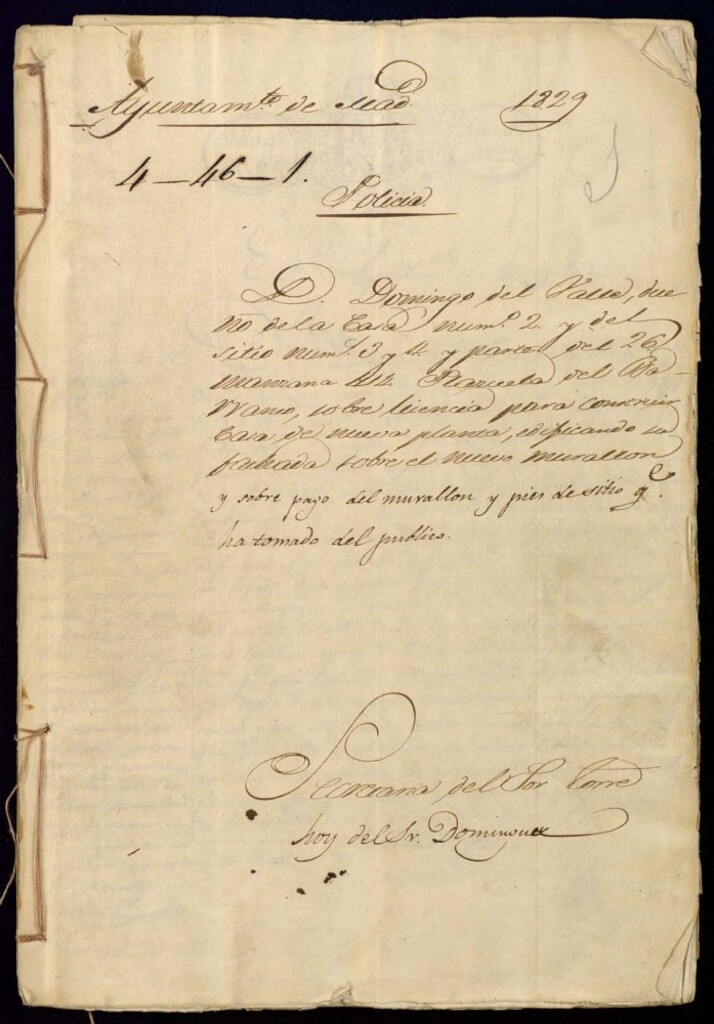 Ayuntamto. de Mad. 1829
4-46-1.
Policia.
D. Domingo del Valle, due
ño de la Casa num.º 2. y del
sitio num.s 3 y 4. y parte del 26
manzana 414. Plazuela del Ba-
rranco, sobre licencia para construir
Casa de nueva planta, edificando su
fachada sobre el nuevo murallon
y sobre pago del murallon y pies de sitio q.e
ha tomado del publico.
Secretaria del Sor Torre
hoy del Sr. Dominguez